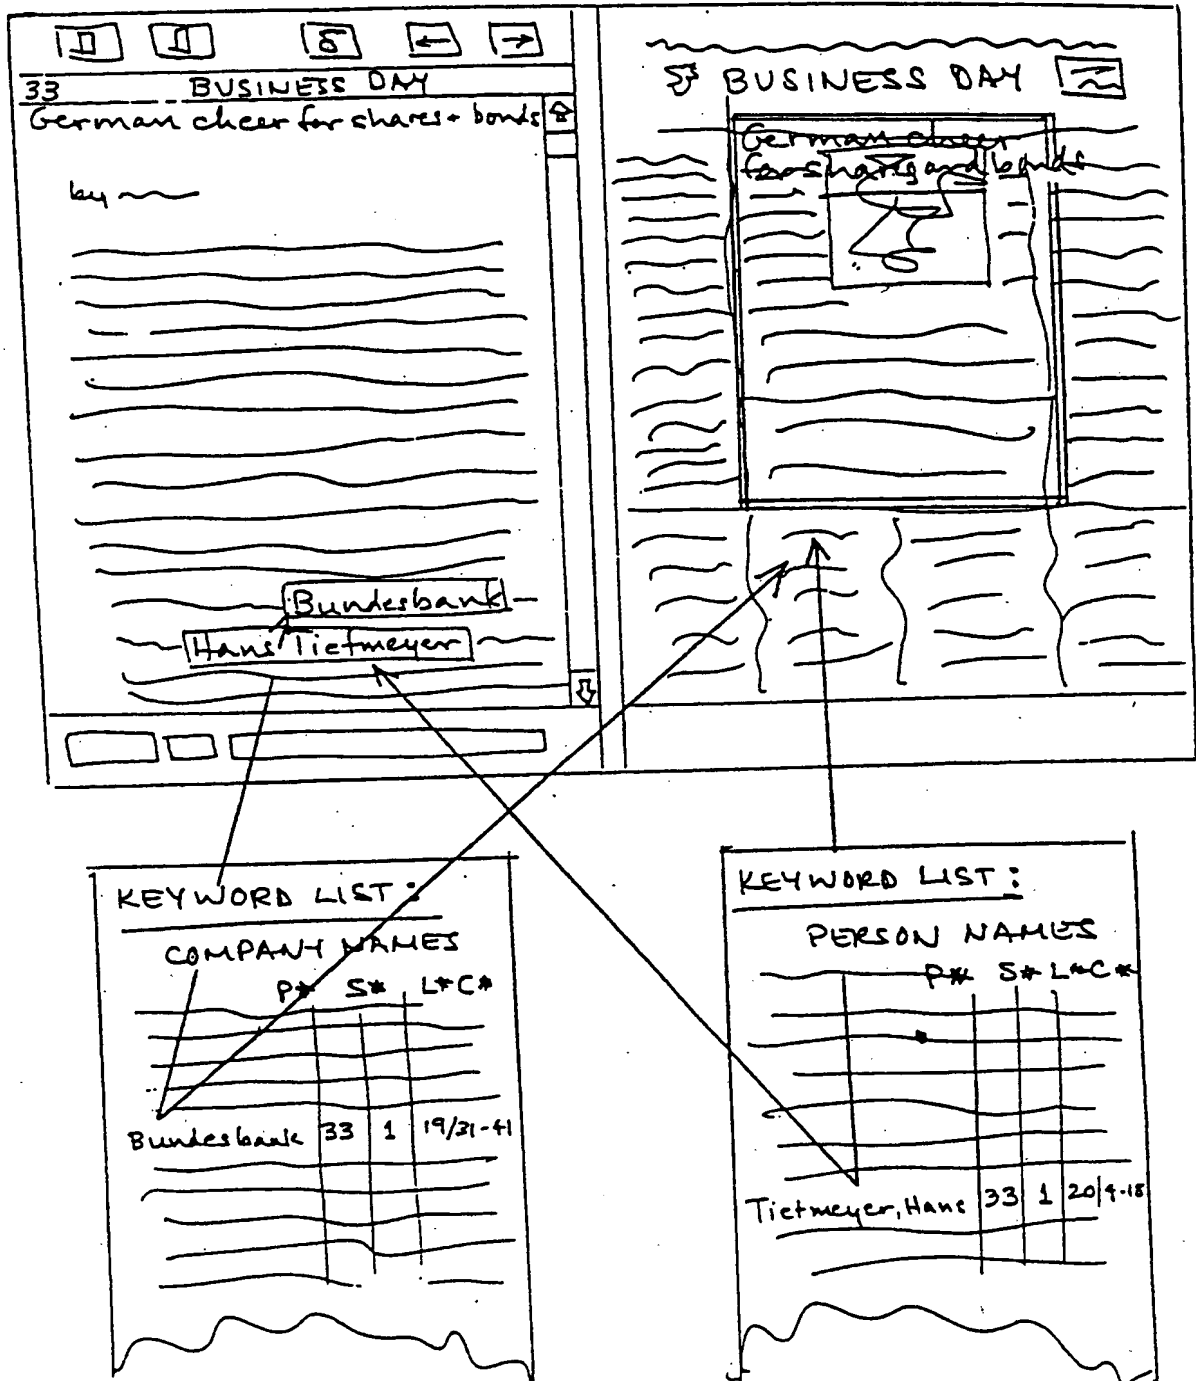 33 BUSINESS DAY
German cheer for shares + bonds
by
Bundesbank
Hans Tietmeyer
BUSINESS DAY
German cheer
for shares and bonds
KEYWORD LIST:
COMPANY NAMES
P* S* L*C*
Bundesbank 33 1 19/31-41
KEYWORD LIST:
PERSON NAMES
P* S* L*C*
Tietmeyer, Hans 33 1 20/9-18